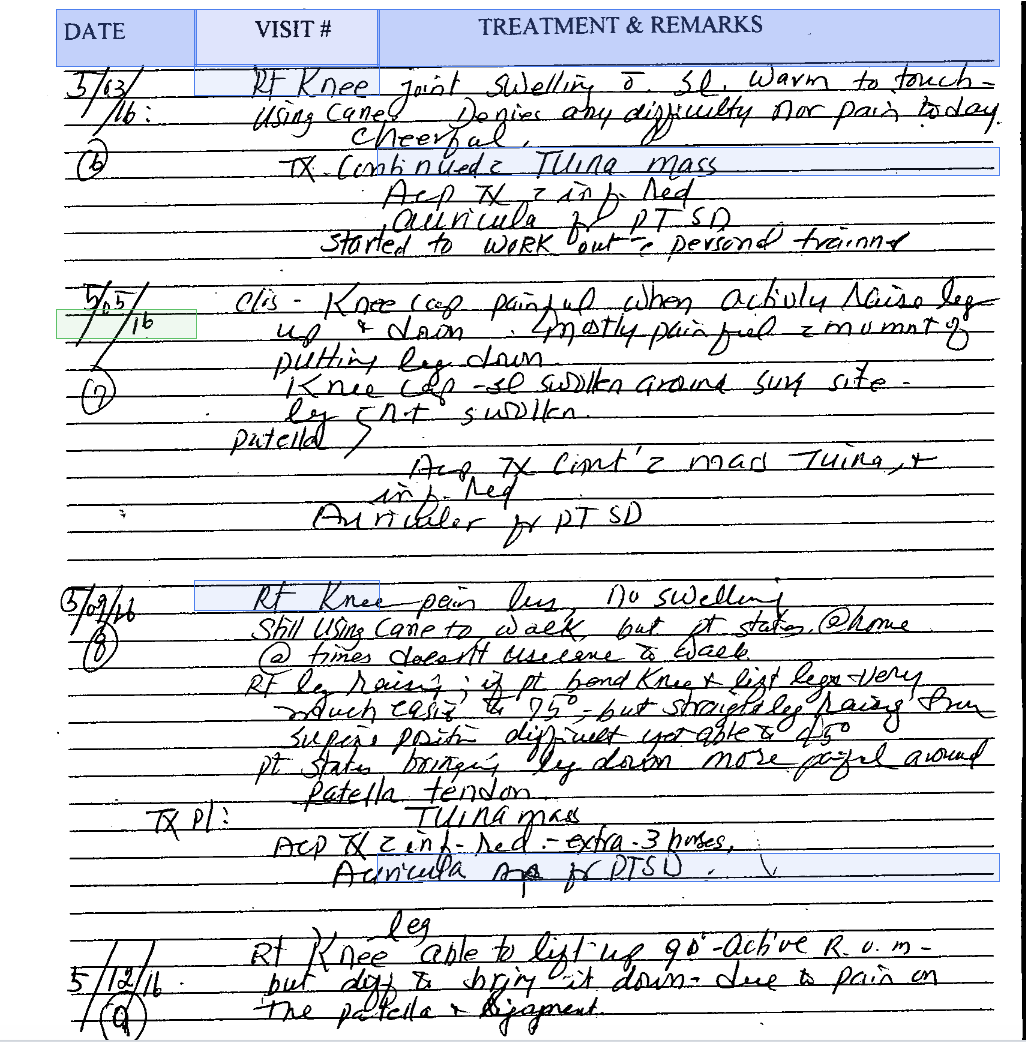 DATE VISIT # TREATMENT & REMARKS
5/03/ Rt Knee joint swelling sl. warm to touch -
/16: Using Cane. Denies any difficulty nor pain today.
cheerful.
(6) TX - Continued c Tuina mass
Acp TX c inf. Red
auricula for PTSD
Started to work out c personal
5/05/ c/is - Knee cap painful when activly raise leg
/16 up & down. mostly painful c mumnt of
putting leg down
(7) Knee cap - sl swollen around surg site -
leg not swollen.
patella
Acp TX Cont' c mass Tuina, +
inf. Red
Auriculer for PTSD
5/09/16 Rt Knee pain less, no swelling
(8) Still Using Cane to walk but pt states @ home
@ times doesn't use cane to walk.
RT leg raising; if pt bend Knee & lift legs very
much easir to 75° - but straight leg raising from
supine positin difficult yet able to 45°
pt states bringing leg down more painful around
patella tendon.
TX Pl: Tuina mass
Acp TX c inf. Red - extra - 3
Auricula for PTSD.
leg
Rt Knee able to lift up 90° - Active R.o.m -
5/12/16. but diff to bring it down - due to pain on
(9) The patella &